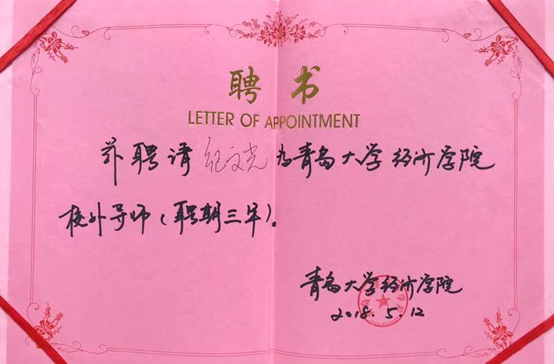 聘书
LETTER OF APPOINTMENT
兹聘请纪文光为青岛大学经济学院
校外导师(聘期三年)。
青岛大学经济学院
2018.5.12